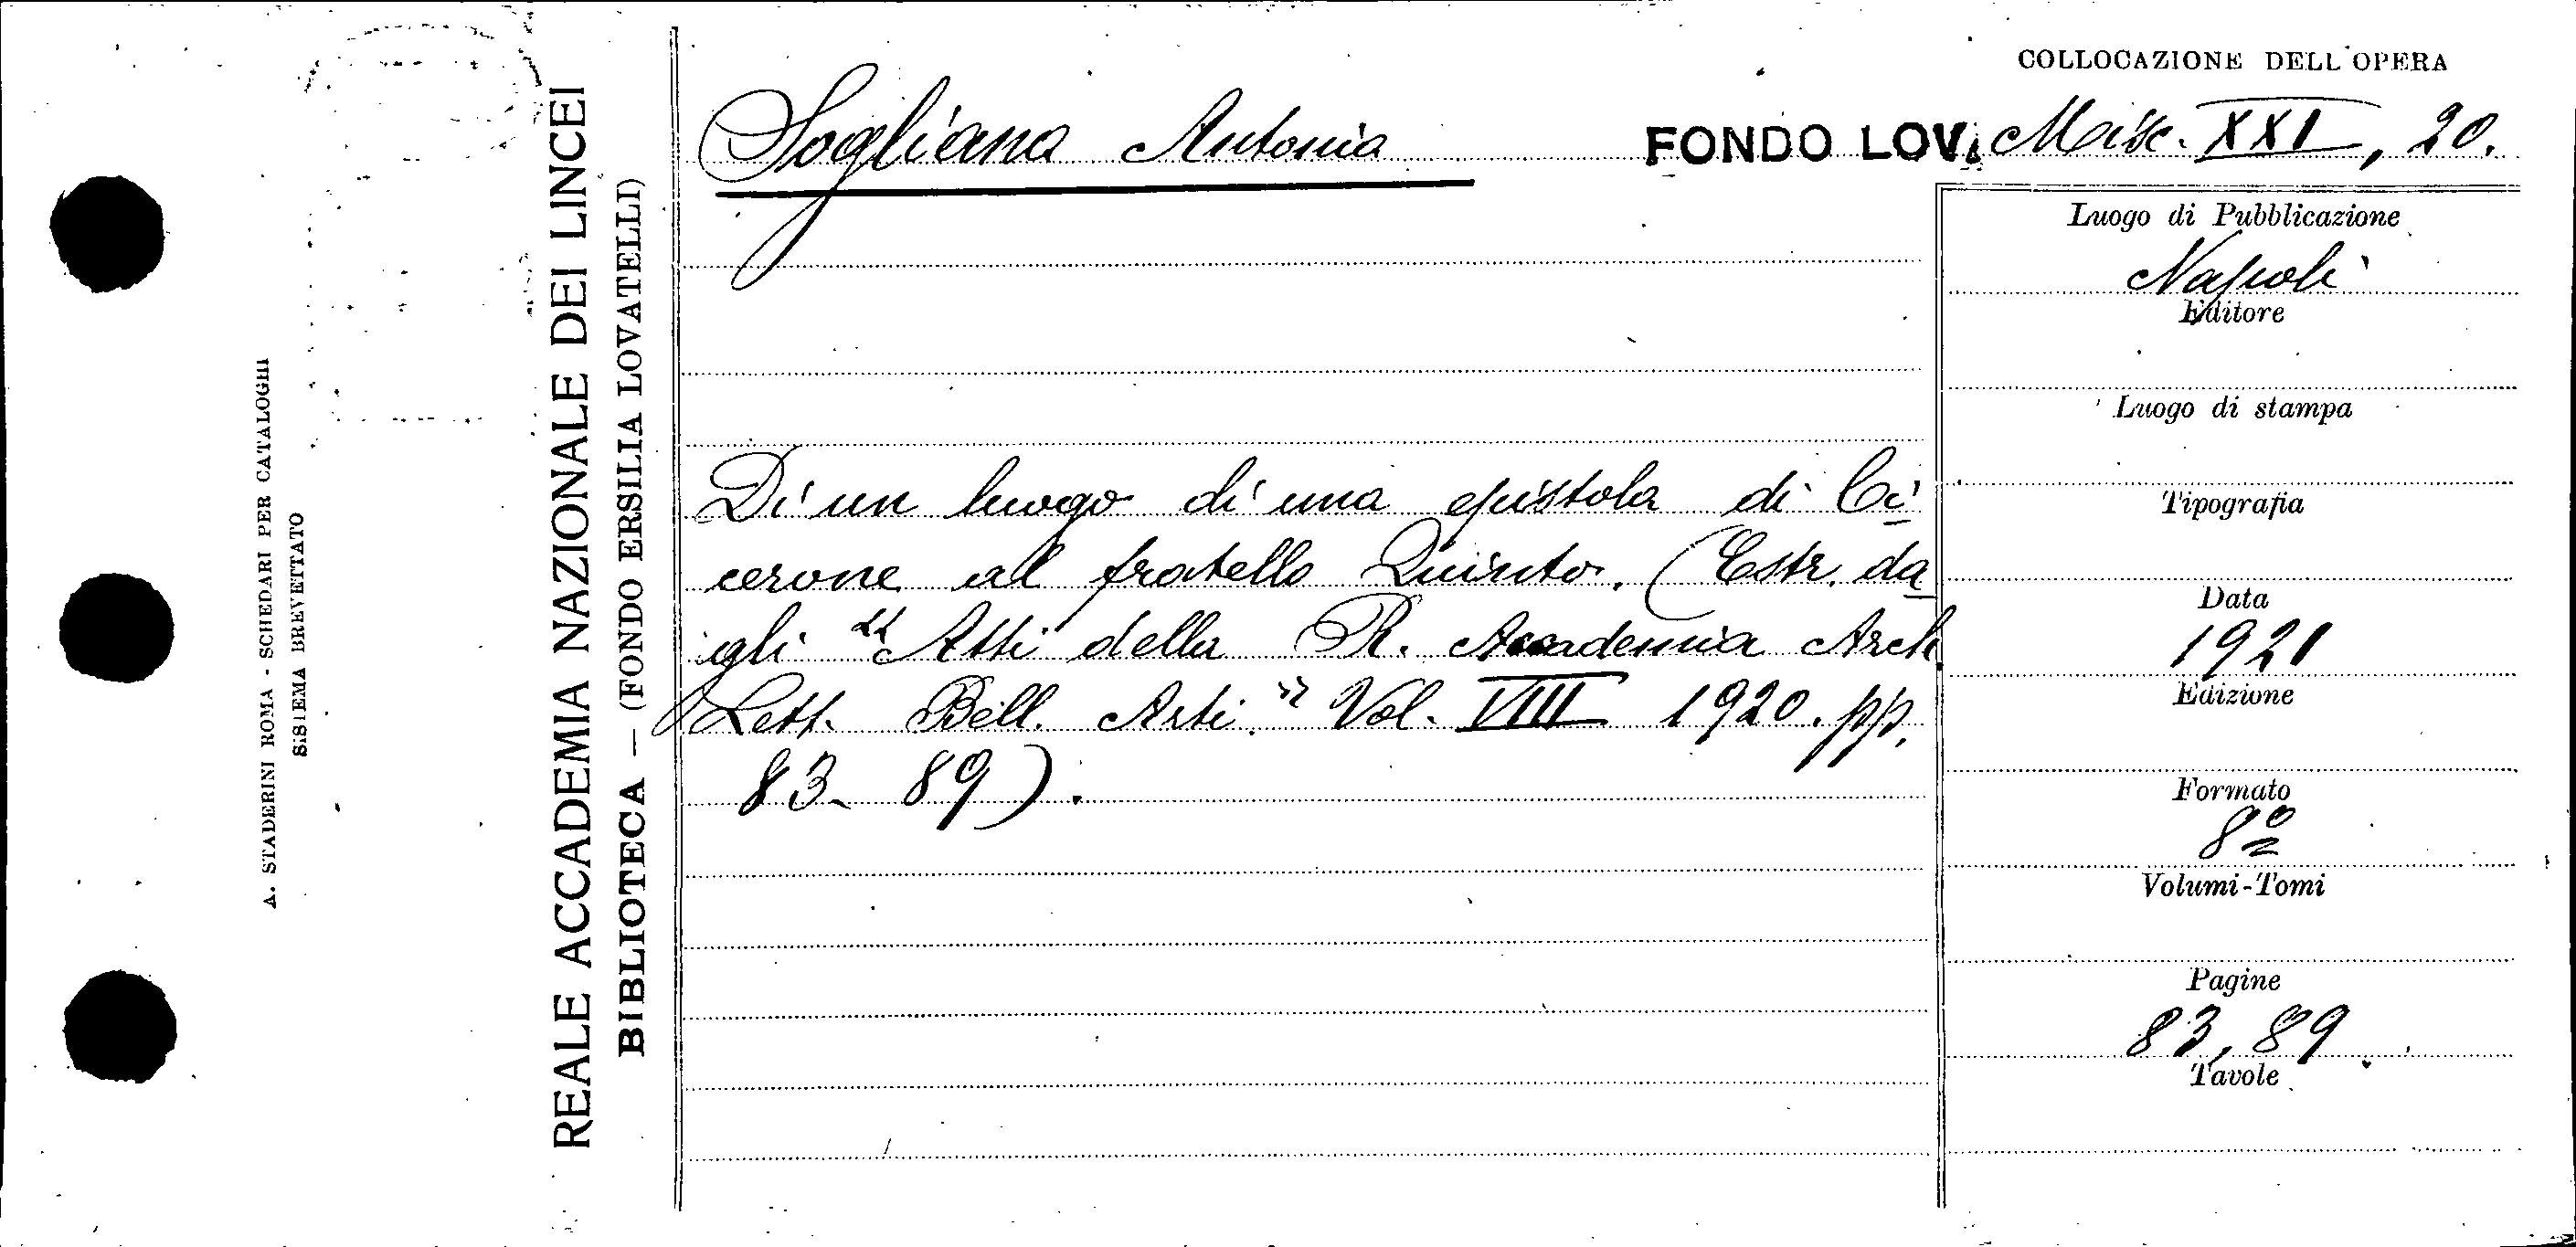 COLLOCAZIONE DELL'OPERA
Sogliano Antonio
FONDO LOV. Misc. XXI, 20.
Di un luogo di una epistola di Ci
cerone al fratello Quinto. (Estr. da
gli "Atti della R. Accademia Arch
Lett. Bell. Arti." Vol. VIII 1920. pp.
83-89).
Luogo di Pubblicazione
Napoli
Editore
Luogo di stampa
Tipografia
Data
1921
Edizione
Formato
8º
Volumi-Tomi
Pagine
83, 89.
Tavole
REALE ACCADEMIA NAZIONALE DEI LINCEI
BIBLIOTECA — (FONDO ERSILIA LOVATELLI)
A. STADERINI ROMA - SCHEDARI PER CATALOGHI
SISTEMA BREVETTATO